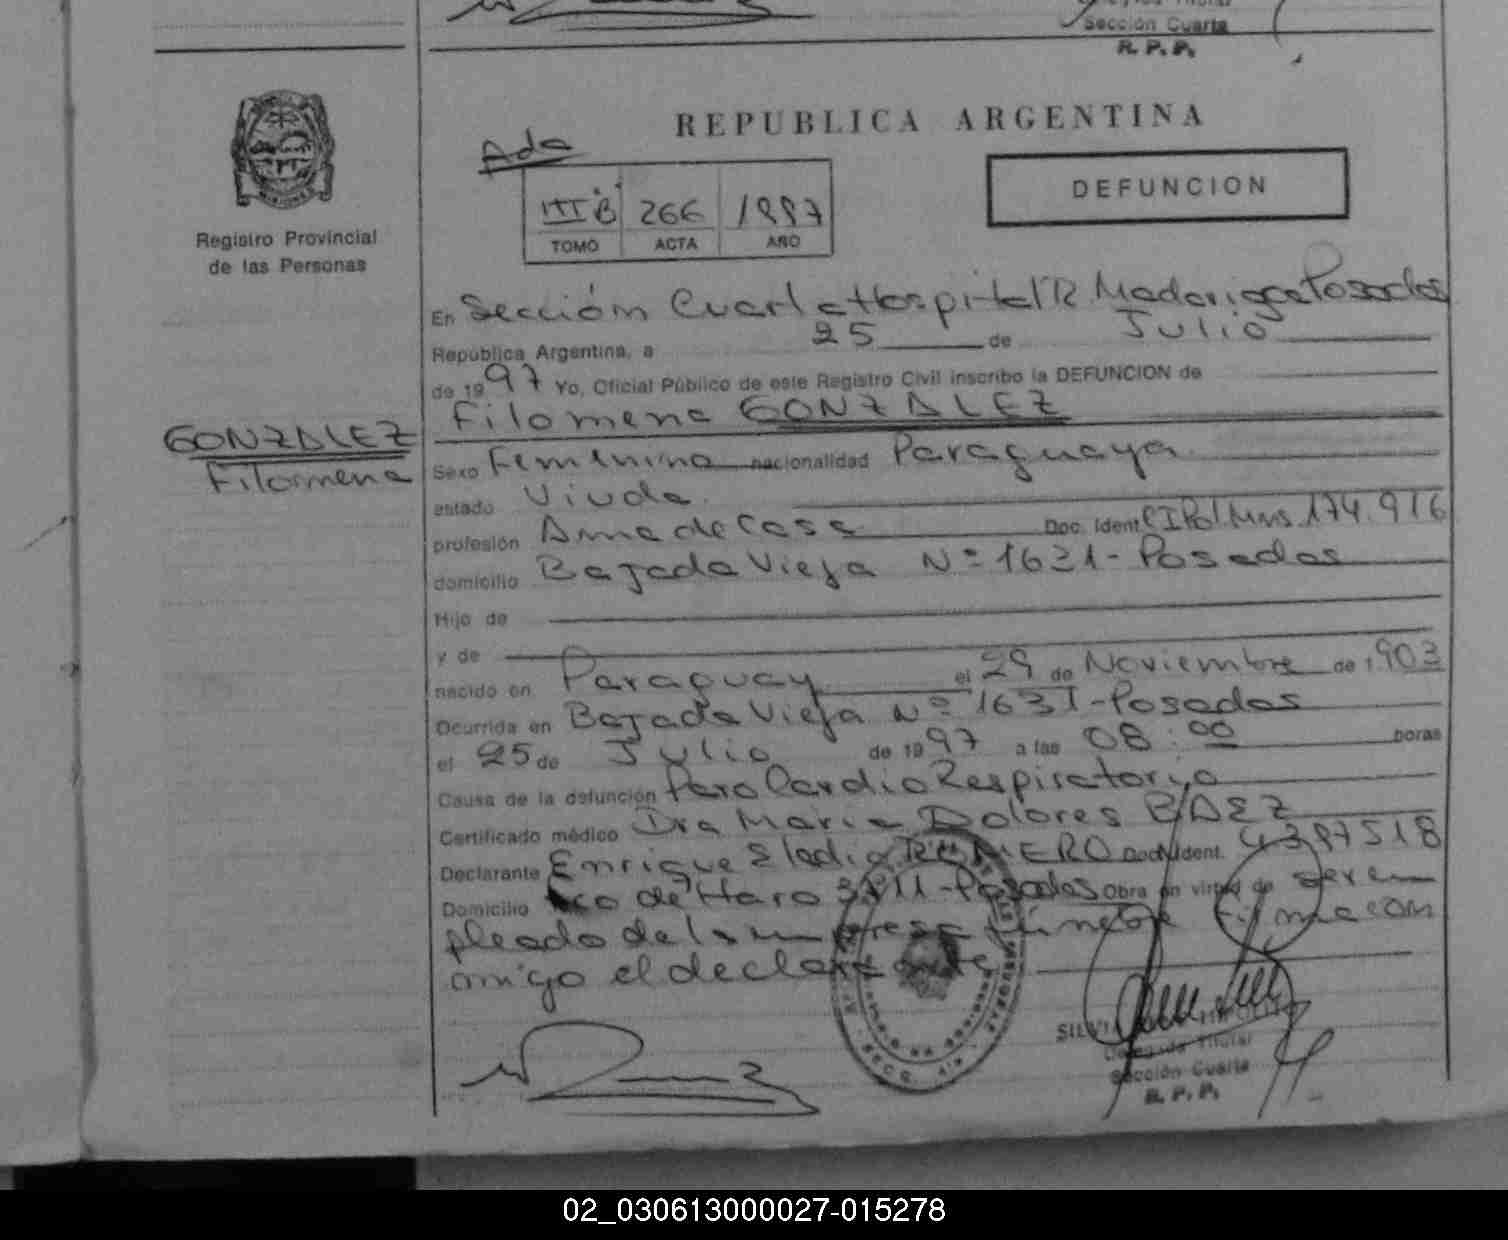 Sección Cuarta
R. P. P.
Registro Provincial
de las Personas
REPUBLICA ARGENTINA
Ada
DEFUNCION
III B 266 1997
TOMO ACTA AÑO
En Sección Cuarta Hospital R. Madariaga Posadas
República Argentina, a 25 de Julio
de 1997 Yo, Oficial Público de este Registro Civil inscribo la DEFUNCION de
Filomena GONZALEZ
GONZALEZ
Filomena
Sexo Femenino nacionalidad Paraguaya
estado Viuda
profesión Ama de Casa Doc. Ident. CIPol Mns 174.916
domicilio Bajada Vieja Nº 1631 - Posadas
Hijo de
y de
nacido en Paraguay el 29 de Noviembre de 1903
Ocurrida en Bajada Vieja Nº 1631 - Posadas
el 25 de Julio de 1997 a las 08:00 horas
Causa de la defunción Paro Cardio Respiratorio
Certificado médico Dra Maria Dolores BAEZ
Declarante Enrique Eladio ROMERO Doc. Ident. 4397518
Domicilio Fco de Haro 3711 - Posadas Obra en virtud de ser em
pleado de la empresa fúnebre Firma con
migo el declarante
SILVI
Delegada Titular
Sección Cuarta
R. P. P.
02_030613000027-015278